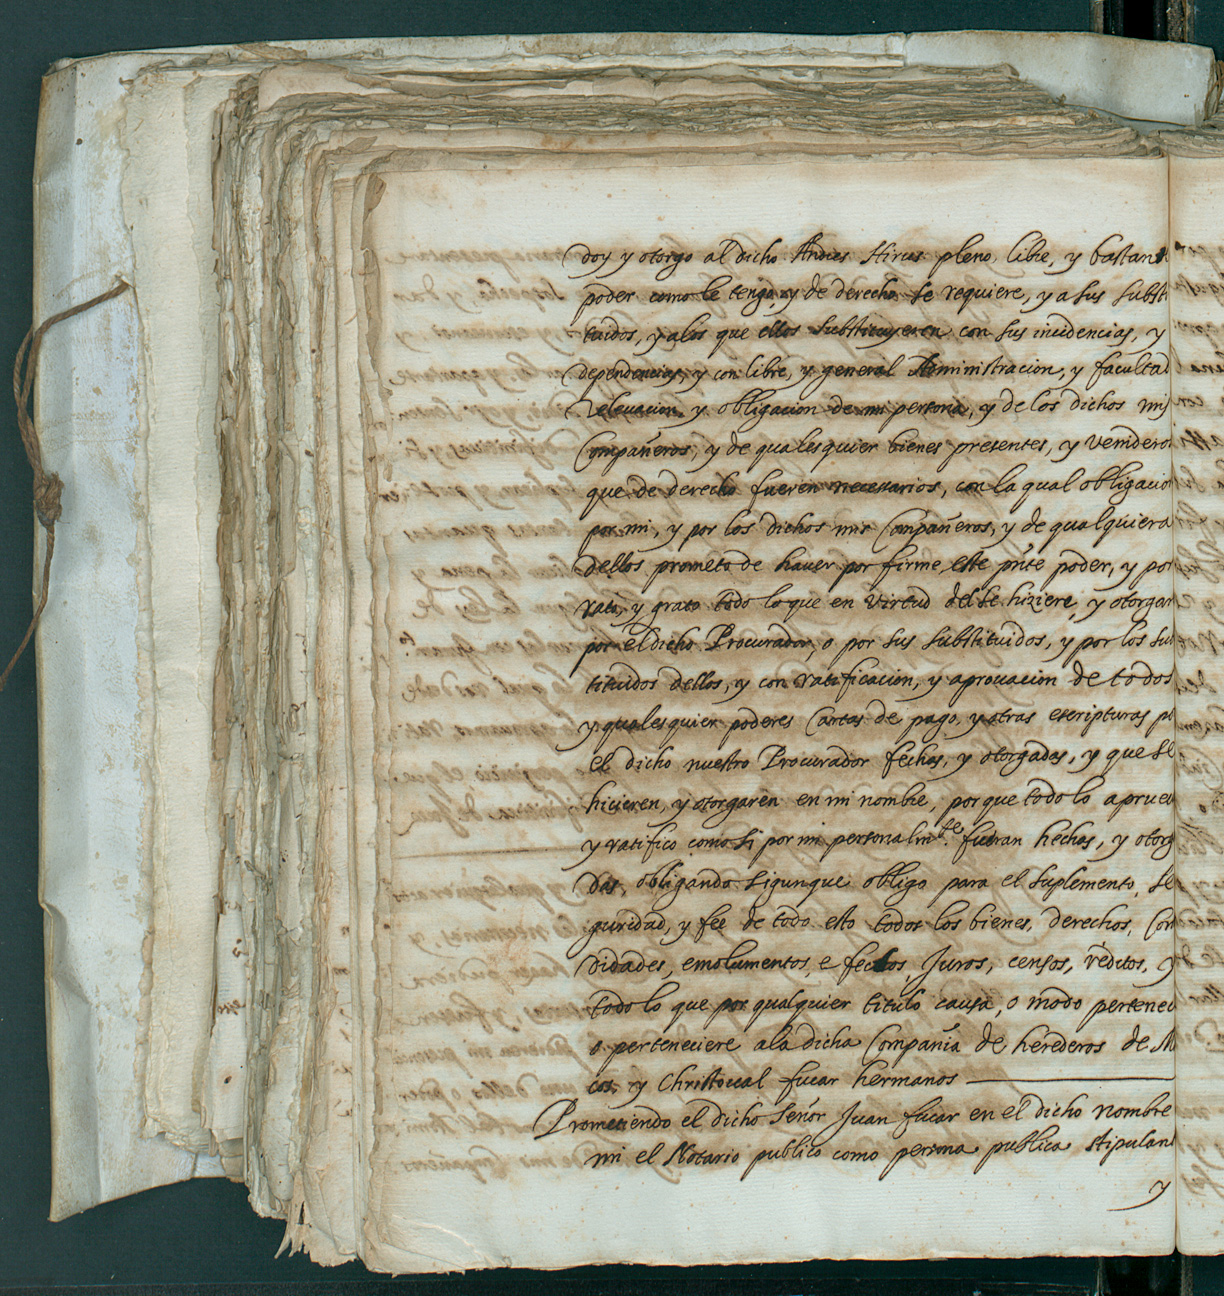 doy y otorgo al dicho Andres Hirus pleno, libre, y bastant
poder como le tengo, y de derecho se requiere, y a sus substi
tuidos, y alos que ellos substituyeren con sus incidencias, y
dependencias, y con libre, y general Administracion, y facultad
Relevacion, y obligacion de mi persona, y de los dichos mis
Compañeros, y de qualesquier bienes presentes, y venideros
que de derecho fueren necessarios, con la qual obligacion
por mi, y por los dichos mis Compañeros, y de qualquiera
dellos prometo de hauer por firme este pnte poder, y por
rato, y grato todo lo que en virtud del se hiziere, y otorgar
por el dicho Procurador, o por sus substituidos, y por los su
tituidos dellos, y con ratificacion, y aprouacion de todos
y qualesquier poderes Cartas de pago, y otras escripturas po
el dicho nuestro Procurador fechas, y otorgadas, y que se
hicieren, y otorgaren en mi nombre, porque todo lo aprueu
y ratifico como si por mi personalmte. fueran hechas, y otorg
das, obligando sigunque obligo para el suplemento, se
guridad, y fee de todo esto todos los bienes, derechos, Com
didades, emolumentos, e fectos, Juros, censos, réditos, y
todo lo que por qualquier titulo causa, o modo pertenec
o perteneciere ala dicha Compañia de herederos de M
cos, y Christoual fucar hermanos
Prometiendo el dicho Señor Juan fucar en el dicho nombre
mi el Notario publico como persona publica stipulan
y